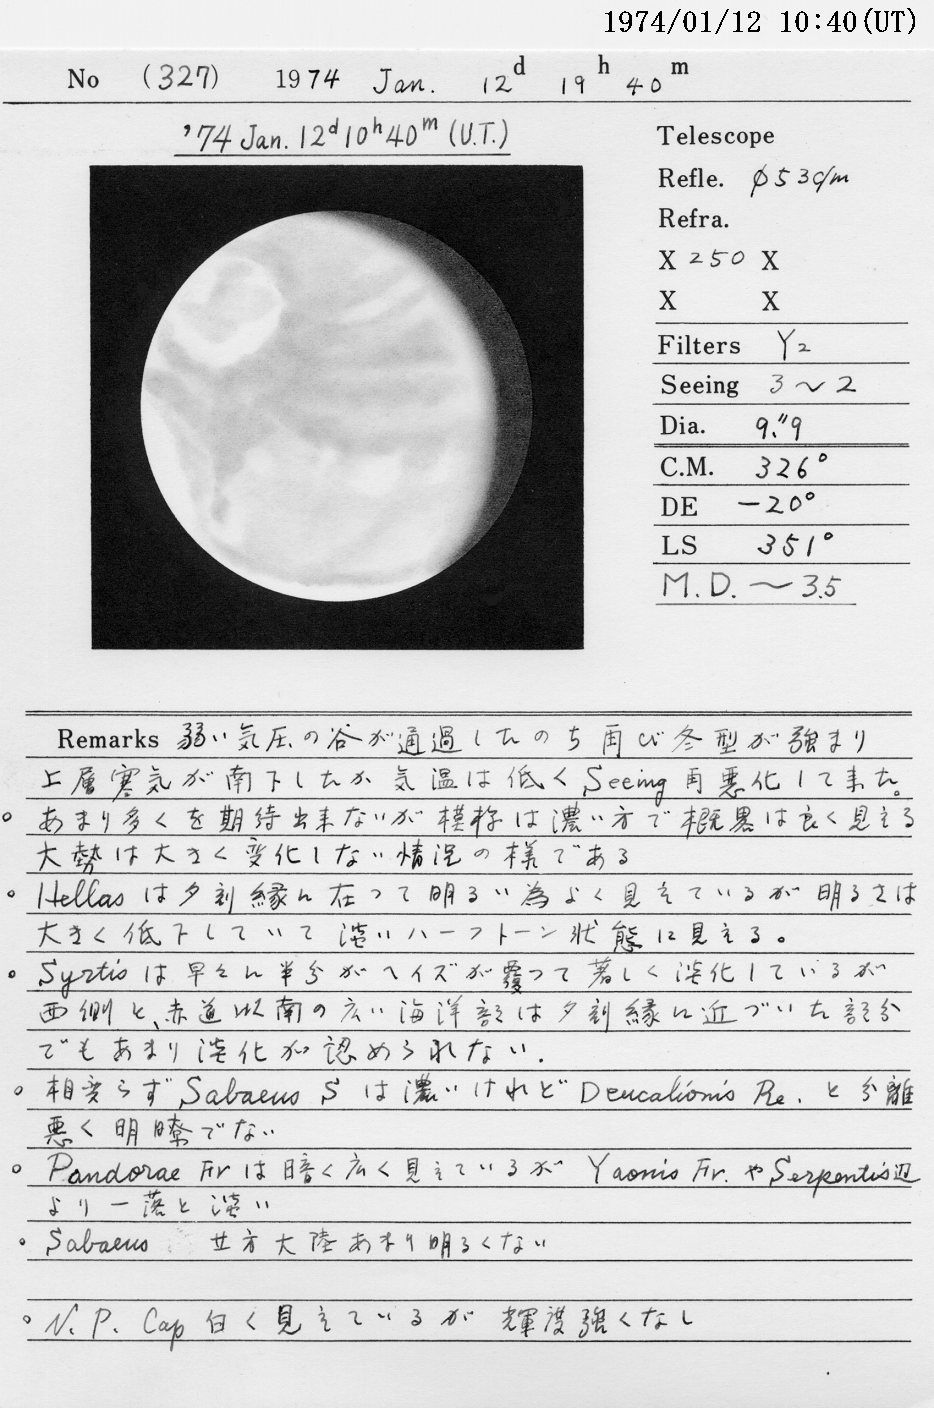 1974/01/12 10:40(UT)
No (327) 1974 Jan. 12d 19h 40m
'74 Jan. 12d 10h 40m (U.T.)
Telescope
Refle. φ53c/m
Refra.
X 250 X
X X
Filters Y2
Seeing 3～2
Dia. 9."9
C.M. 326°
DE －20°
LS 351°
M.D. ～3.5
Remarks 弱い気圧の谷が通過したのち再び冬型が強まり
上層寒気が南下したか気温は低くSeeing再悪化して来た。
○ あまり多くを期待出来ないが模様は濃い方で概略は良く見える
大勢は大きく変化しない情況の様である
○ Hellasは夕刻縁に在って明るい為よく見えているが明るさは
大きく低下していて淡いハーフトーン状態に見える。
○ Syrtisは早や北半分がヘイズが覆って著しく淡化しているが
西側と、赤道以南の広い海洋部は夕刻縁に近づいた部分
でもあまり淡化が認められない.
○ 相変らずSabaeus Sは濃いけれどDeucalionis Re.と分離
悪く明瞭でない
○ Pandorae Frは暗く広く見えているがYaonis Fr.やSerpentis辺
より一落と淡い
○ Sabaeus 北方大陸あまり明るくない
○ N.P. Cap 白く見えているが 輝度強くなし